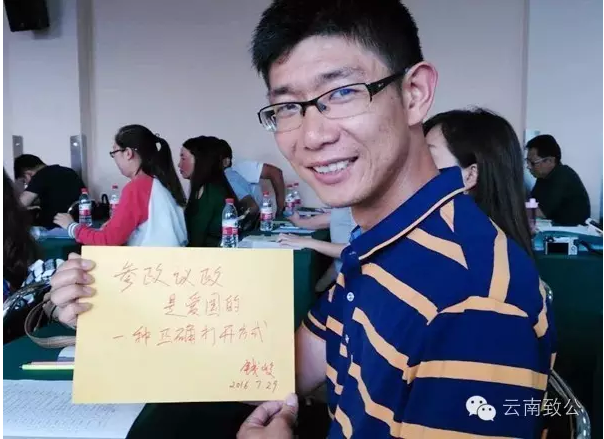 参政议政
是爱国的
一种正确打开方式
2016.7.29
云南致公